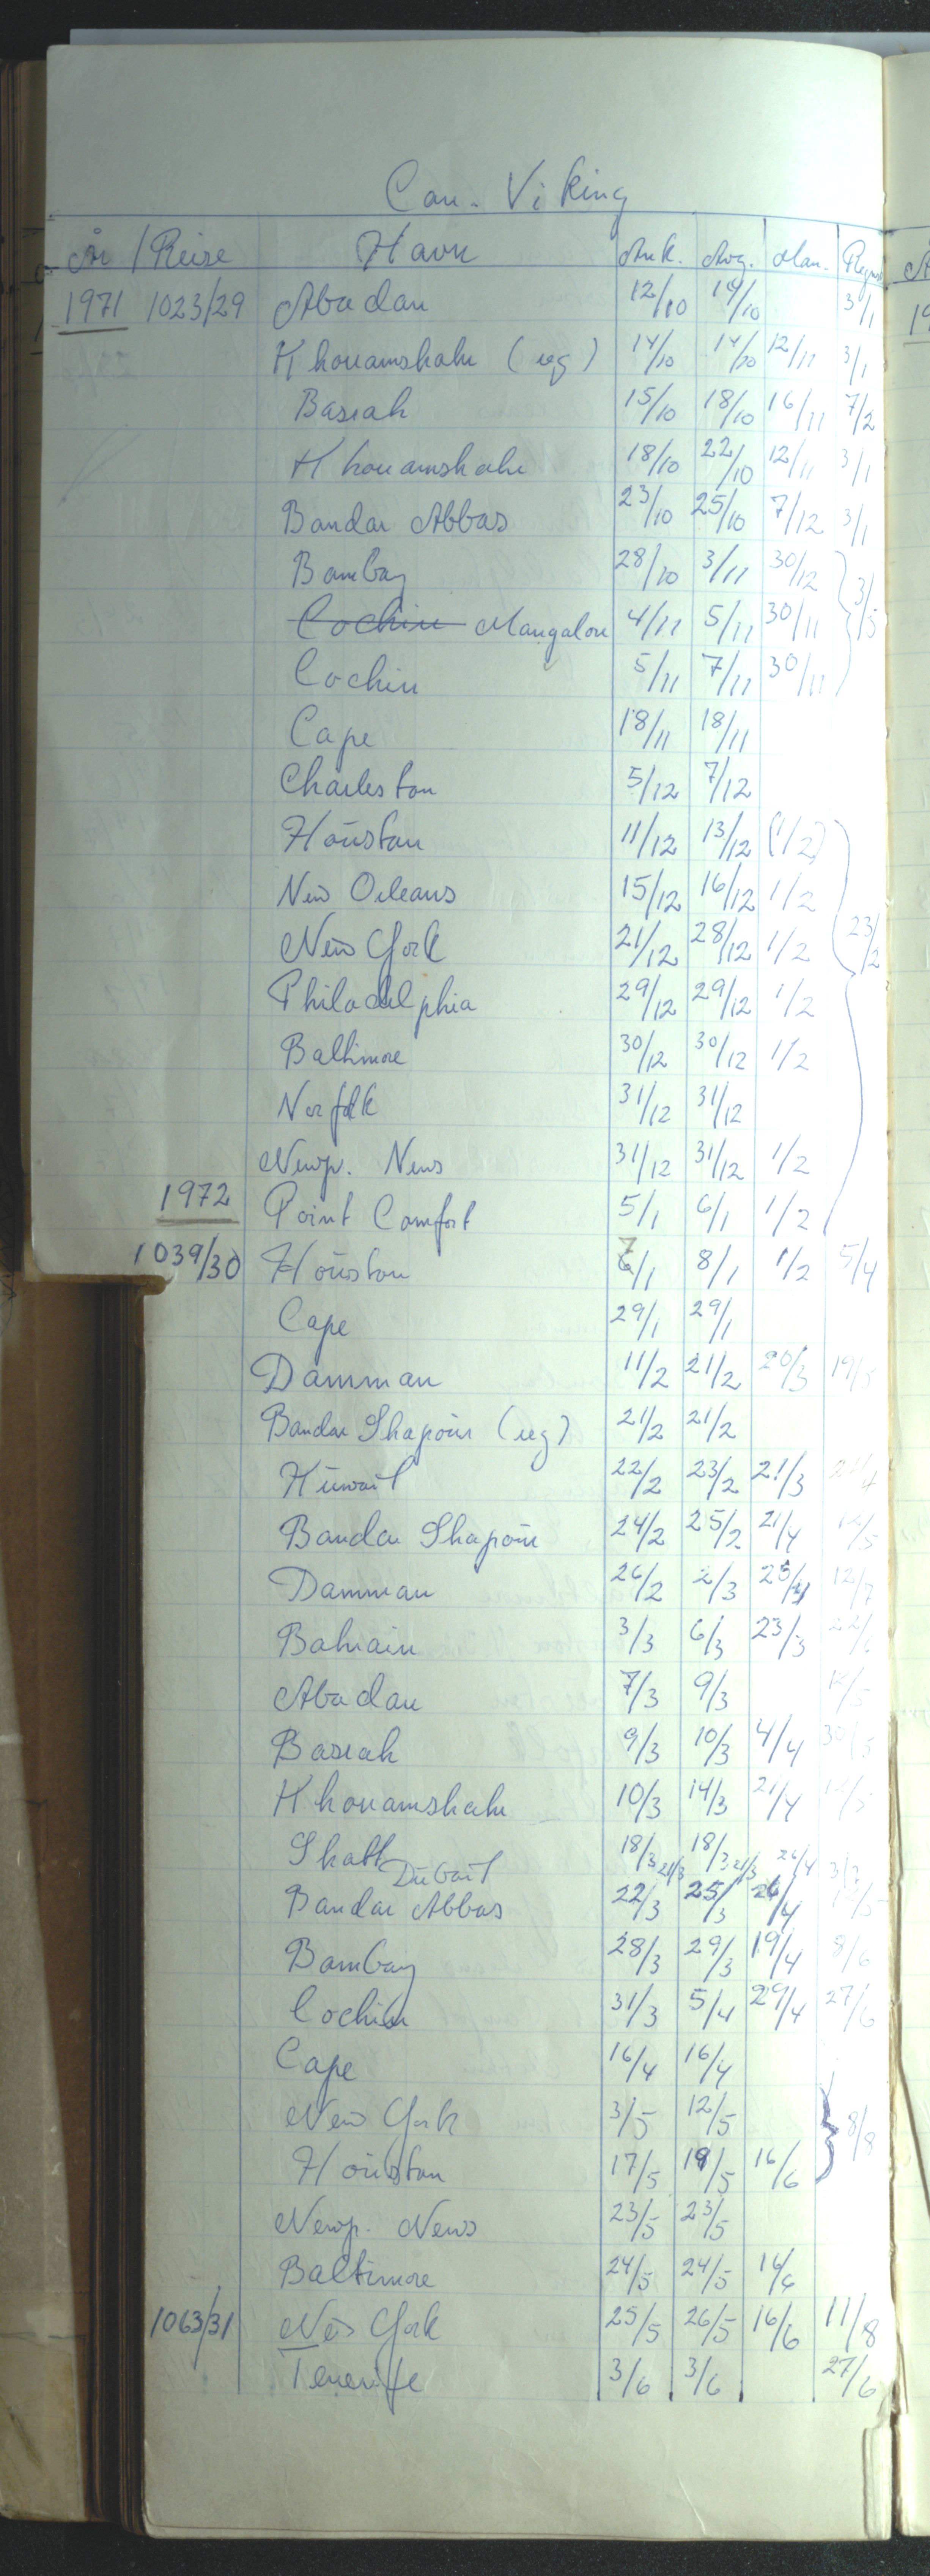 Con. Viking
År / Reise Havn Ank. Avg. Man. Regnsk
1971 1023/29 Abadan 12/10 14/10 3/1
Khoramshahr (reg) 14/10 14/10 12/11 3/1
Basrah 15/10 18/10 16/11 7/2
Khoramshahr 18/10 22/10 12/11 3/1
Bandar Abbas 23/10 25/10 7/12 3/1
Bombay 28/10 3/11 30/12
Cochin Mangalore 4/11 5/11 30/11 3/5
Cochin 5/11 7/11 30/11
Cape 18/11 18/11
Charleston 5/12 7/12
Houston 11/12 13/12 (1/2)
New Orleans 15/12 16/12 1/2
New York 21/12 28/12 1/2 23/2
Philadelphia 29/12 29/12 1/2
Baltimore 30/12 30/12 1/2
Norfolk 31/12 31/12
Newp. News 31/12 31/12 1/2
1972 Point Comfort 5/1 6/1 1/2
1039/30 Houston 7/1 8/1 1/2 5/4
Cape 29/1 29/1
Damman 11/2 21/2 20/3 19/5
Bandar Shapour (reg) 21/2 21/2
Kuwait 22/2 23/2 21/3
Bandar Shapour 24/2 25/2 21/4 12/5
Damman 26/2 2/3 25/4 12/7
Bahrain 3/3 6/3 23/3
Abadan 7/3 9/3
Basrah 9/3 10/3 4/4 30/5
Khoramshahr 10/3 14/3 21/4 12/5
Skatt 18/3 18/3
Dubai 21/3 21/3 26/4
Bandar Abbas 22/3 25/3 26/4
Bombay 28/3 29/3 19/4 8/6
Cochin 31/3 5/4 29/4 27/6
Cape 16/4 16/4
New York 3/5 12/5 8/8
Houston 17/5 19/5 16/6
Newp. News 23/5 23/5
Baltimore 24/5 24/5 16/6
1063/31 New York 25/5 26/5 16/6 11/8
Tenerife 3/6 3/6 27/6